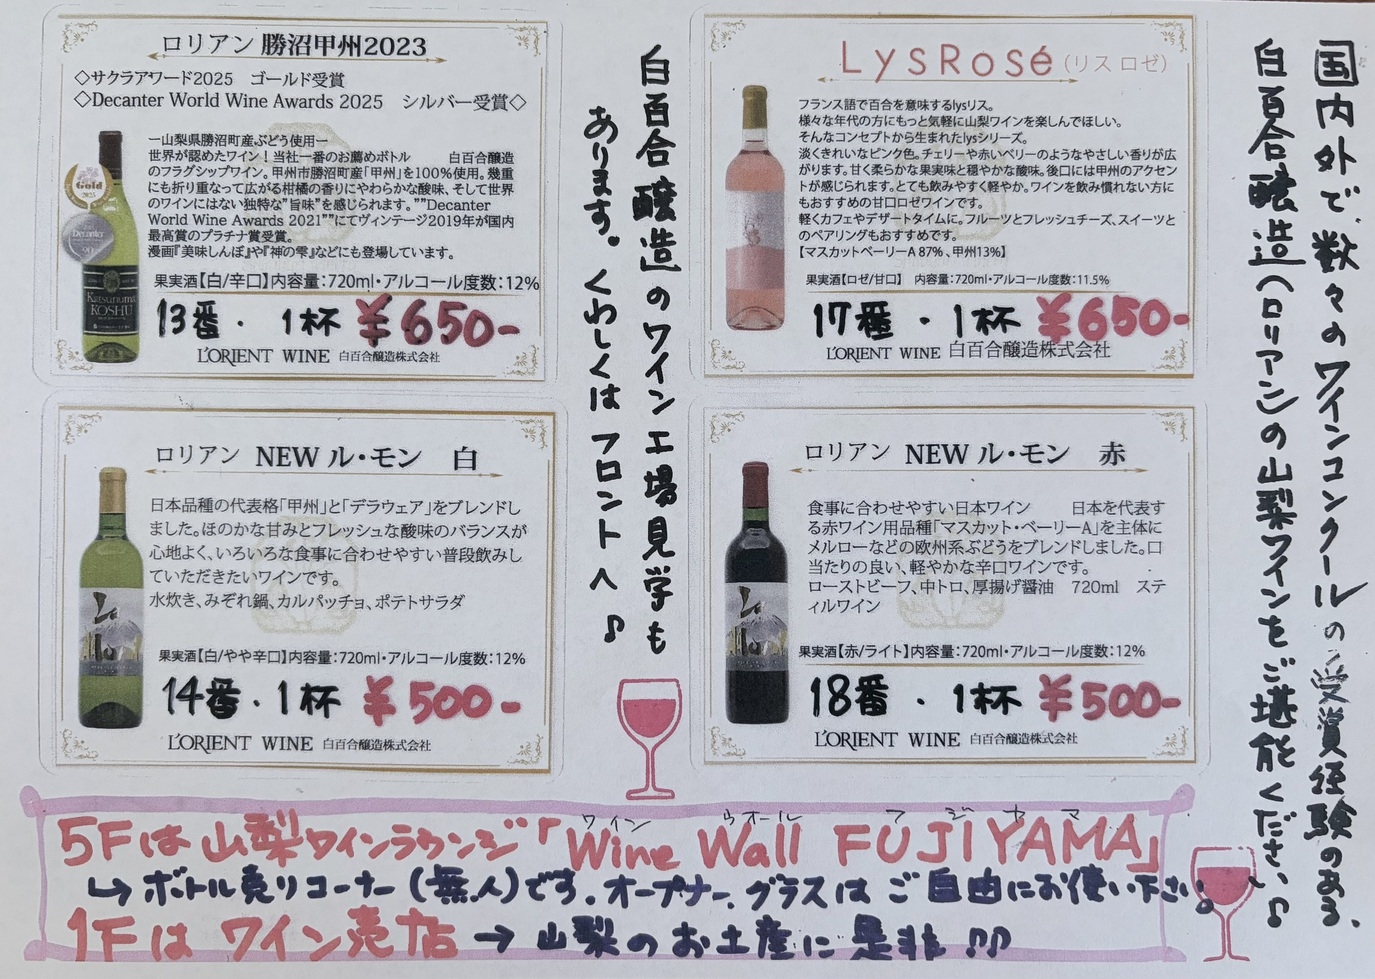 国内外で、数々のワインコンクールの受賞経験のある、
白百合醸造(ロリアン)の山梨ワインをご堪能ください♪
ロリアン 勝沼甲州2023
◇サクラアワード2025 ゴールド受賞
◇Decanter World Wine Awards 2025 シルバー受賞◇
ー山梨県勝沼町産ぶどう使用ー
世界が認めたワイン！当社一番のお薦めボトル 白百合醸造
のフラグシップワイン。甲州市勝沼町産「甲州」を100%使用。幾重
にも折り重なって広がる柑橘の香りにやわらかな酸味、そして世界
のワインにはない独特な"旨味"を感じられます。""Decanter
World Wine Awards 2021""にてヴィンテージ2019年が国内
最高賞のプラチナ賞受賞。
漫画『美味しんぼ』や『神の雫』などにも登場しています。
果実酒【白/辛口】内容量：720ml・アルコール度数：12%
13番・1杯 ¥650-
L'ORIENT WINE 白百合醸造株式会社
Gold
Decanter
Katsunuma
KOSHU
白百合醸造のワイン工場見学も
あります。くわしくはフロントへ♪
LysRosé(リス ロゼ)
フランス語で百合を意味するlysリス。
様々な年代の方にもっと気軽に山梨ワインを楽しんでほしい。
そんなコンセプトから生まれたlysシリーズ。
淡くきれいなピンク色。チェリーや赤いベリーのようなやさしい香りが広
がります。甘く柔らかな果実味と穏やかな酸味。後口には甲州のアクセン
トが感じられます。とても飲みやすく軽やか。ワインを飲み慣れない方に
もおすすめの甘口ロゼワインです。
軽くカフェやデザートタイムに。フルーツとフレッシュチーズ、スイーツと
のペアリングもおすすめです。
【マスカットベーリーA 87%、甲州13%】
果実酒【ロゼ/甘口】 内容量：720ml・アルコール度数：11.5%
17番・1杯 ¥650-
L'ORIENT WINE 白百合醸造株式会社
ロリアン NEW ル・モン 白
日本品種の代表格「甲州」と「デラウェア」をブレンドし
ました。ほのかな甘みとフレッシュな酸味のバランスが
心地よく、いろいろな食事に合わせやすい普段飲みし
ていただきたいワインです。
水炊き、みぞれ鍋、カルパッチョ、ポテトサラダ
果実酒【白/やや辛口】内容量：720ml・アルコール度数：12%
14番・1杯 ¥500-
L'ORIENT WINE 白百合醸造株式会社
ロリアン NEW ル・モン 赤
食事に合わせやすい日本ワイン 日本を代表す
る赤ワイン用品種「マスカット・ベーリーA」を主体に
メルローなどの欧州系ぶどうをブレンドしました。口
当たりの良い、軽やかな辛口ワインです。
ローストビーフ、中トロ、厚揚げ醤油 720ml ステ
ィルワイン
果実酒【赤/ライト】内容量：720ml・アルコール度数：12%
18番・1杯 ¥500-
L'ORIENT WINE 白百合醸造株式会社
ワイン ウオール フジヤマ
5Fは山梨ワインラウンジ「Wine Wall FUJIYAMA」
↳ボトル売りコーナー(無人)です。オープナー、グラスはご自由にお使い下さい。
1Fはワイン売店→山梨のお土産に是非♪♪